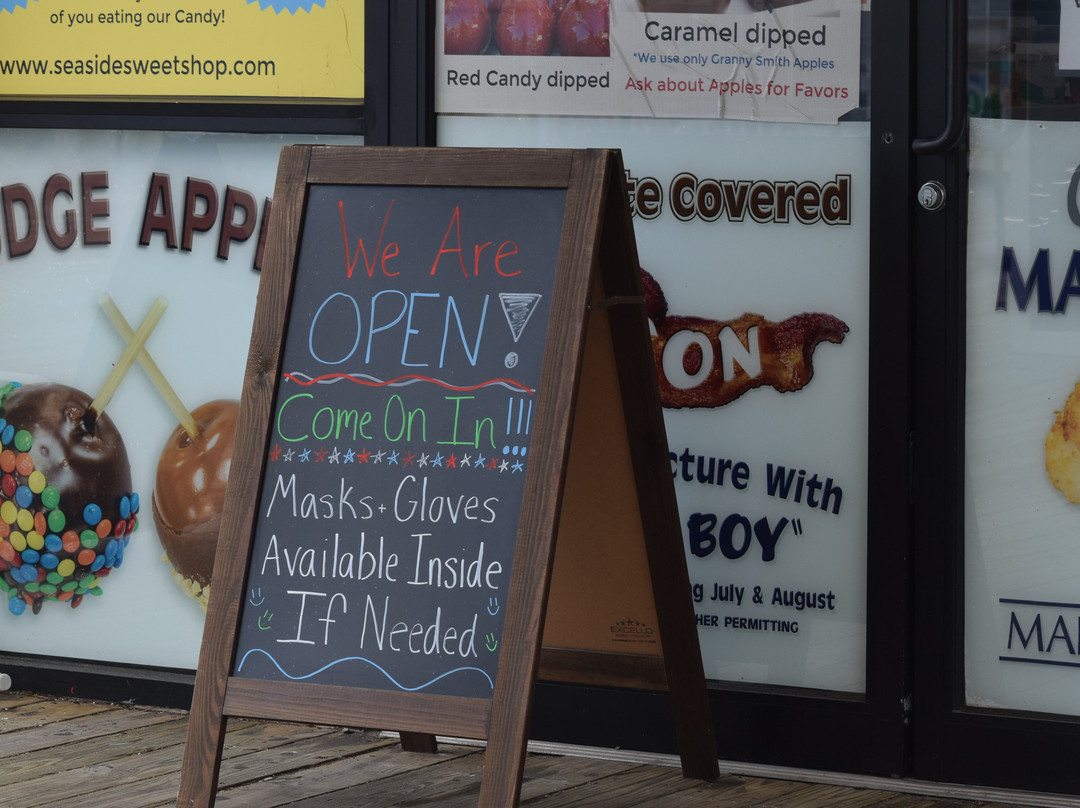 of you eating our Candy!
www.seasidesweetshop.com
Red Candy dipped
Caramel dipped
*We use only Granny Smith Apples
Ask about Apples for Favors
DGE APP
We Are
OPEN!
Come On In!!!
Masks + Gloves
Available Inside
If Needed
te Covered
ON
cture With
BOY"
ng July & August
HER PERMITTING
EXCELLO
MA
MA